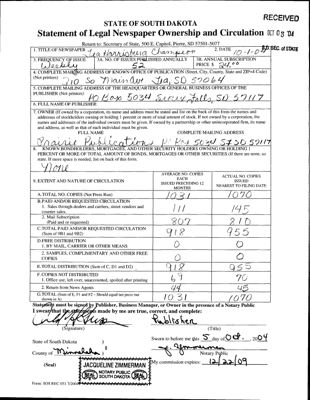 RECEIVED
OCT 03 '04
STATE OF SOUTH DAKOTA
Statement of Legal Newspaper Ownership and Circulation
S.D. SEC. OF STATE
Return to: Secretary of State, 500 E. Capitol, Pierre, SD 57501-5077
1. TITLE OF NEWSPAPER Tea Harrisburg Champion
2. DATE 10-1-04
3. FREQUENCY OF ISSUE Weekly
3A. NO. OF ISSUES PUBLISHED ANNUALLY 52
3B. ANNUAL SUBSCRIPTION PRICE $ 24.00
4. COMPLETE MAILING ADDRESS OF KNOWN OFFICE OF PUBLICATION (Street, City, County, State and ZIP+4 Code) (Not printers)
210 So Main Ave Tea, SD 57064
5. COMPLETE MAILING ADDRESS OF THE HEADQUARTERS OR GENERAL BUSINESS OFFICES OF THE PUBLISHER
PO Box 5034 Sioux Falls, SD 57117
6. FULL NAME OF PUBLISHER:
7. OWNER (If owned by a corporation, its name and address must be stated and also on the back of this form the names and
addresses of stockholders owning or holding 1 percent or more of total amount of stock. If not owned by a corporation, the
names and addresses of the individual owners must be given. If owned by a partnership or other unincorporated firm, its name
and address, as well as that of each individual must be given.
FULL NAME
COMPLETE MAILING ADDRESS
Prairie Publications
5034 SF SD 57117
8. KNOWN BONDHOLDERS, MORTGAGEES, AND OTHER SECURITY HOLDERS OWNING OR HOLDING 1
PERCENT OR MORE OF TOTAL AMOUNT OF BONDS, MORTGAGES OR OTHER SECURITIES (If there are none, so
state. If more space is needed, list on back of this form.
None
9. EXTENT AND NATURE OF CIRCULATION
AVERAGE NO. COPIES EACH ISSUED PRECEDING 12 MONTHS
ACTUAL NO. COPIES ISSUED NEAREST TO FILING DATE
A. TOTAL NO. COPIES (Net Press Run) 1031 1070
B. PAID AND/OR REQUESTED CIRCULATION
1. Sales through dealers and carriers, street vendors and counter sales. 111 145
2. Mail Subscription (Paid and or requested) 807 810
C. TOTAL PAID AND/OR REQUESTED CIRCULATION (Sum of 9B1 and 9B2) 918 955
D. FREE DISTRIBUTION
1. BY MAIL, CARRIER OR OTHER MEANS 0 0
2. SAMPLES, COMPLIMENTARY AND OTHER FREE COPIES 0 0
E. TOTAL DISTRIBUTION (Sum of C, D1 and D2) 918 955
F. COPIES NOT DISTRIBUTED
1. Office use, left over, unaccounted, spoiled after printing 67 70
2. Return from News Agents 45
G. TOTAL (Sum of E, F1 and F2 - Should equal net press run shown in A) 1031 1070
Statement must be signed by Publisher, Business Manager, or Owner in the presence of a Notary Public
I swear that the statements made by me are true, correct, and complete:
Publisher
(Signature)
(Title)
State of South Dakota )
Sworn to before me this 5 day of Oct. 2004
County of Minnehaha )
J. Zimmerman
Notary Public
(Seal)
JACQUELINE ZIMMERMAN
SEAL NOTARY PUBLIC SOUTH DAKOTA SEAL
My commission expires: 12/22/09